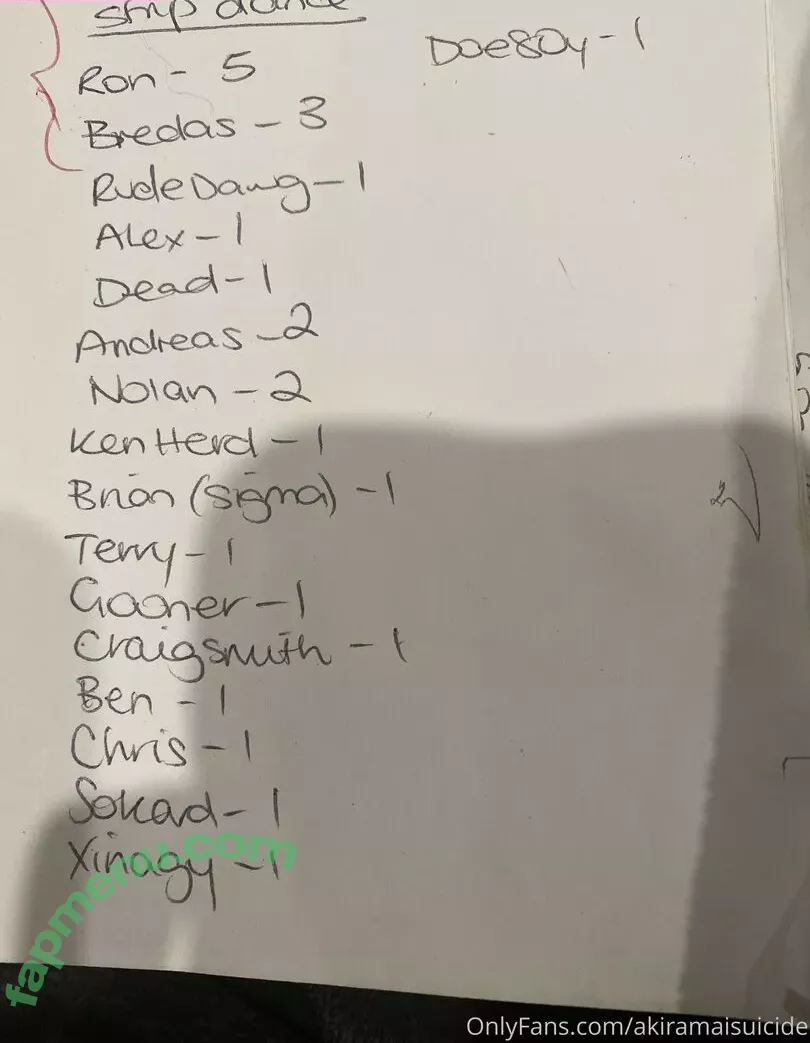 strip dance
Ron - 5
Doe80y - 1
Bredas - 3
RudeDawg - 1
Alex - 1
Dead - 1
Andreas - 2
Nolan - 2
Ken Herd - 1
Brian (sigma) - 1
Terry - 1
Gooner - 1
Craigsmith - 1
Ben - 1
Chris - 1
Sokad - 1
Xinagy - 1
2
fapmenu.com
OnlyFans.com/akiramaisuicide